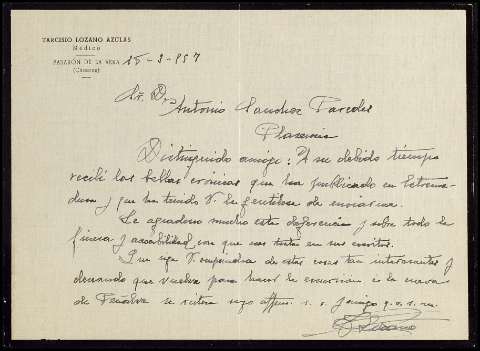 TARCISIO LOZANO AZULAS
Médico
PASARÓN DE LA VERA
(Cáceres)
15-3-957
Sr. D. Antonio Sanchez Paredes
Plasencia
Distinguido amigo: A su debido tiempo
recibí las bellas crónicas que ha publicado en Extrema-
dura y que ha tenido V. la gentileza de enviarme.
Le agradezco mucho esta deferencia y sobre todo la
fineza y amabilidad con que nos trata en sus escritos.
Que siga V. ocupandose de estas cosas tan interesantes y
deseando que vuelva para hacer la excursion a la cueva
de se reitera suyo affmo. s. s. y amigo q. e. s. m.
T Lozano